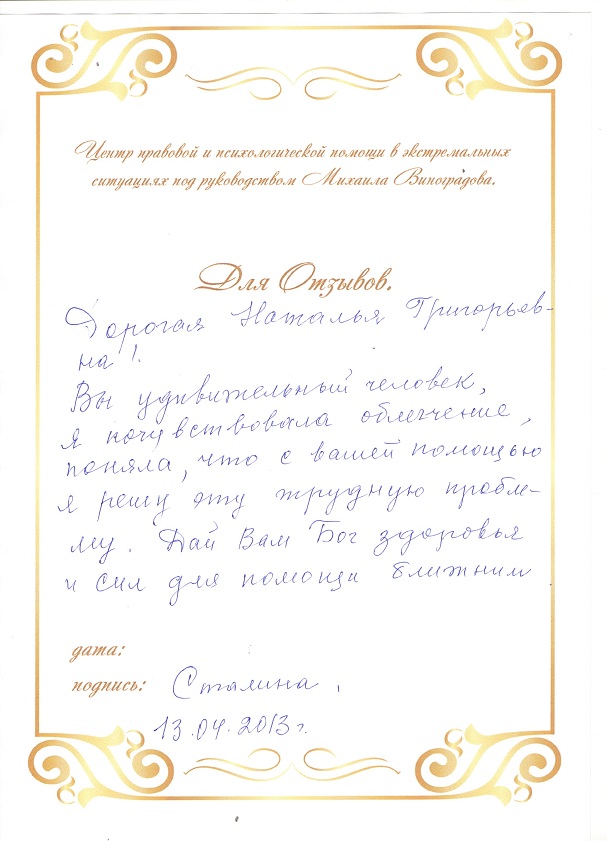 Центр правовой и психологической помощи в экстремальных
ситуациях под руководством Михаила Виноградова.
Для Отзывов.
Дорогая Наталья Григорьев-
на!
Вы удивительный человек,
я почувствовала облегчение,
поняла, что с вашей помощью
я решу эту трудную пробле-
му. Дай Вам Бог здоровья
и сил для помощи ближним
дата:
подпись: Сталина.
13.04.2013 г.